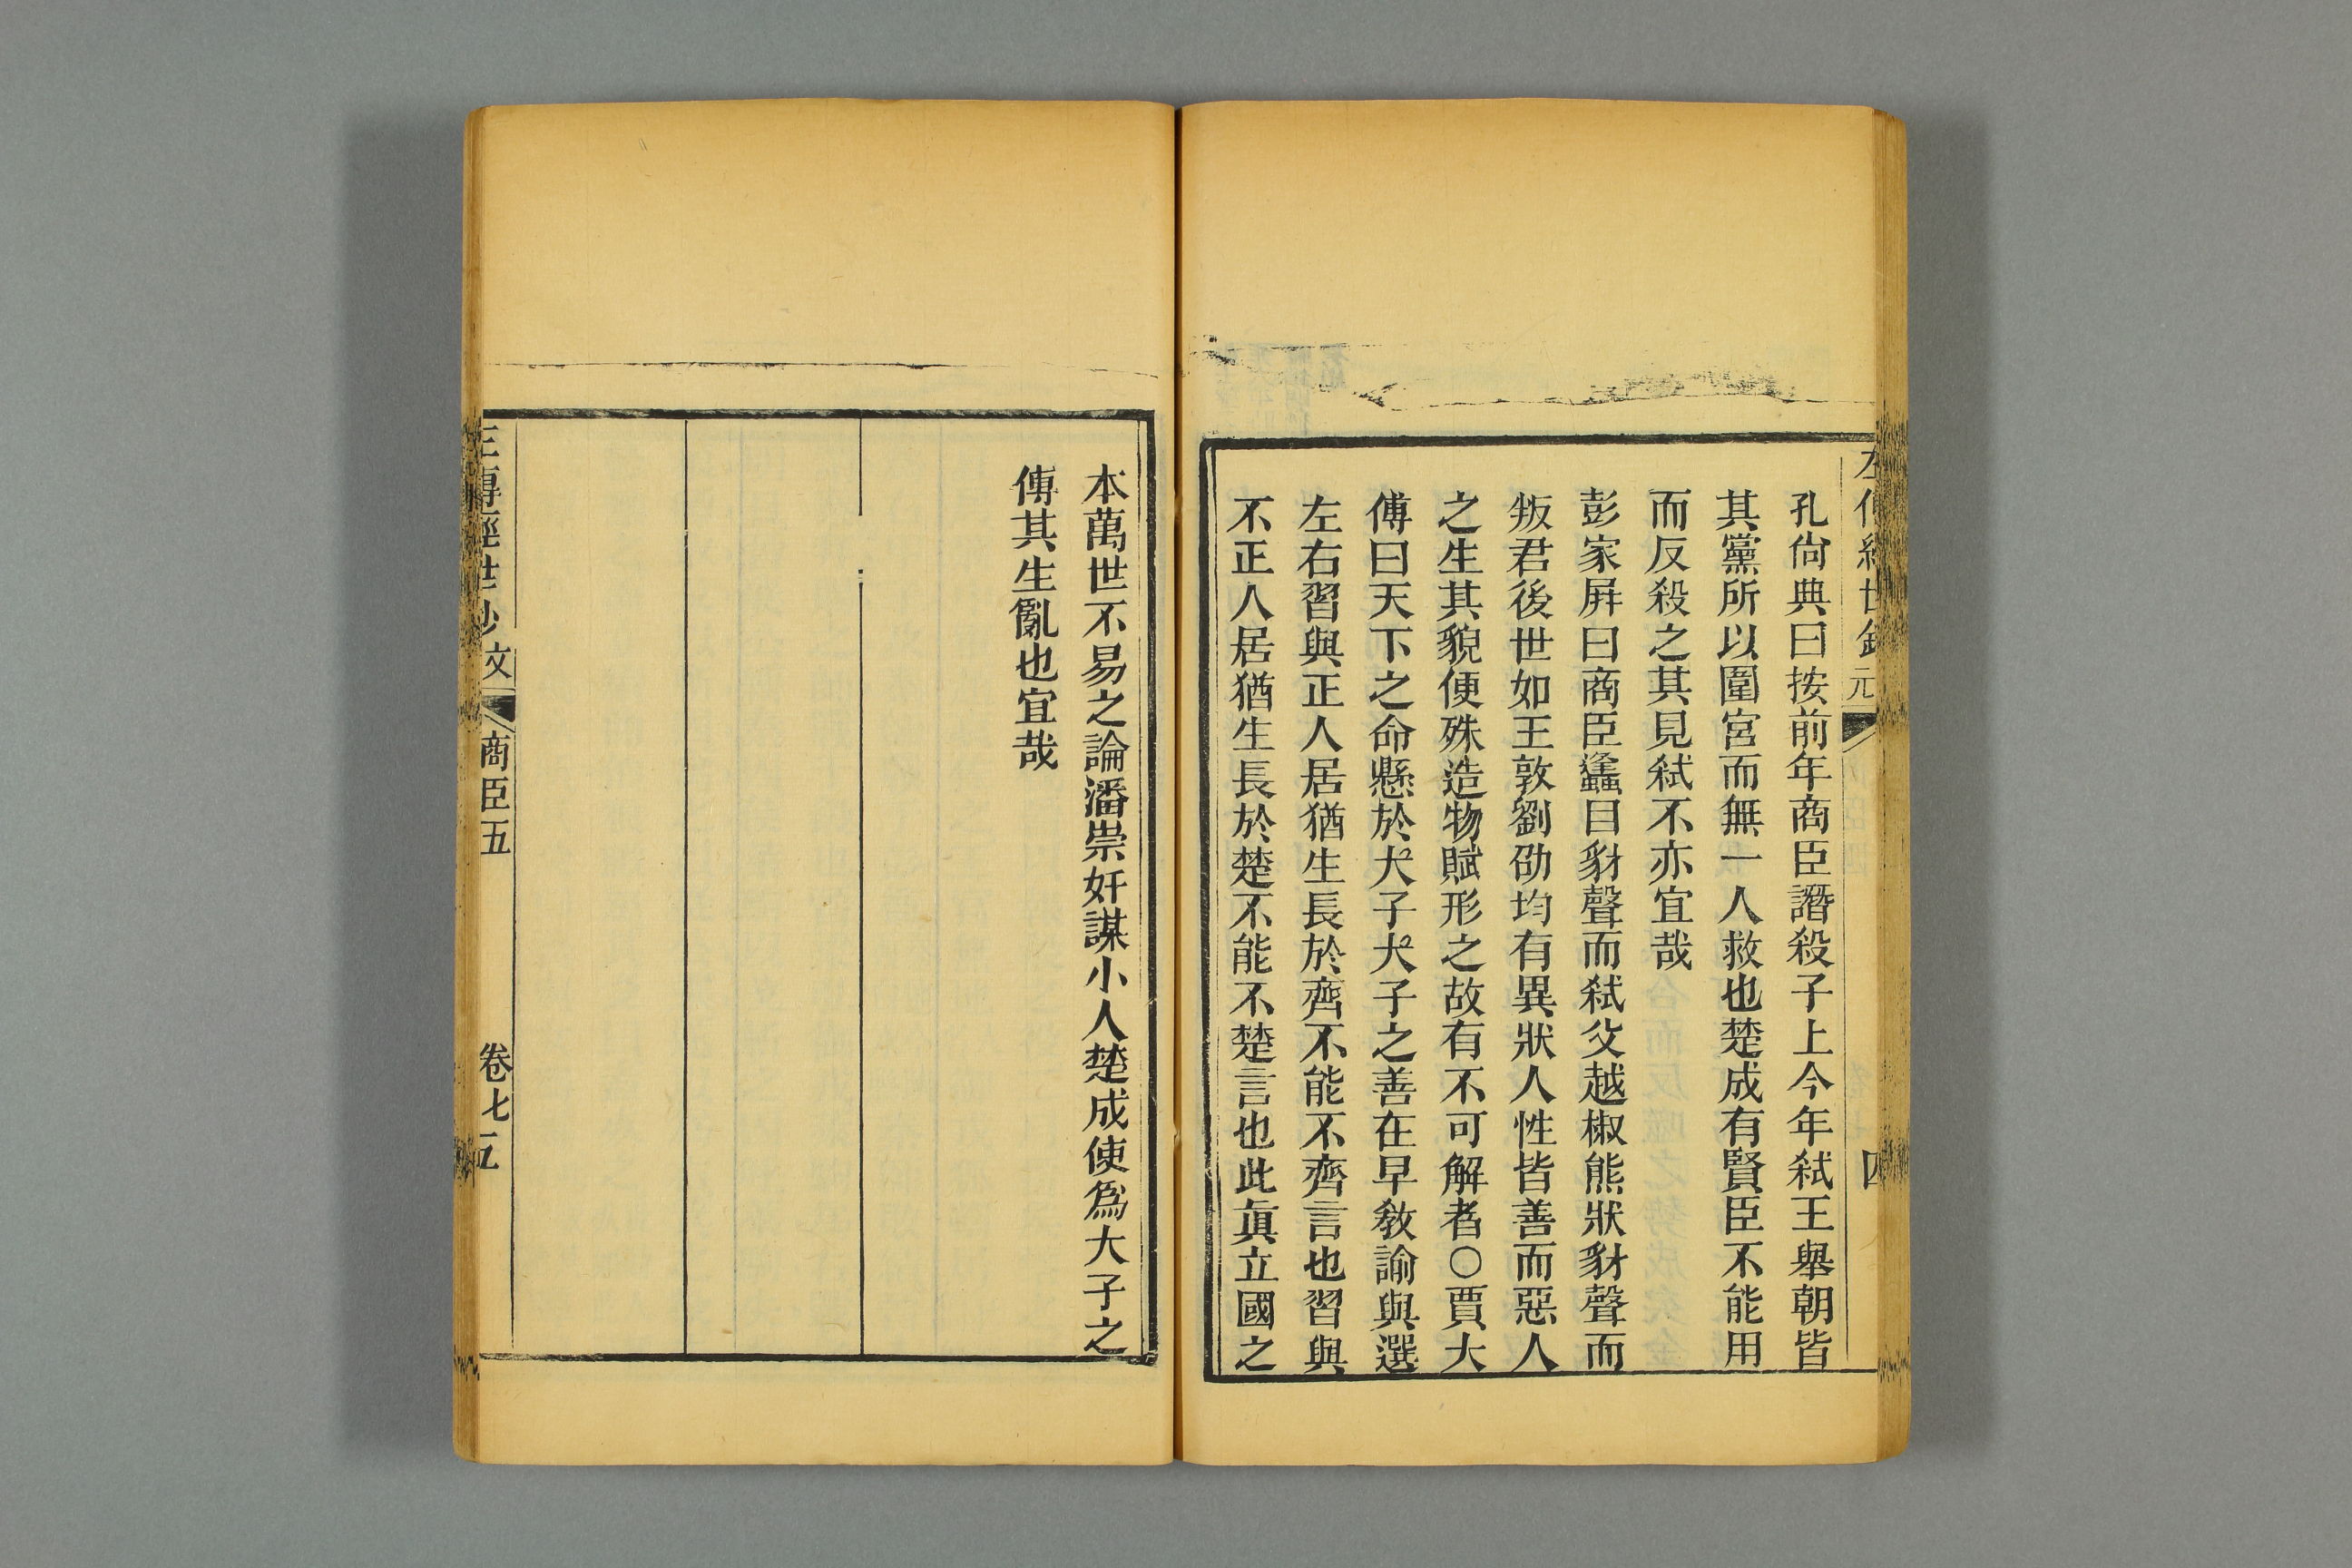 孔尙典曰按前年商臣譖殺子上今年弑王舉朝皆
其黨所以圍宮而無一人救也楚成有賢臣不能用
而反殺之其見弑不亦宜哉
彭家屛曰商臣蠭目豺聲而弑父越椒熊狀豺聲而
叛君後世如王敦劉劭均有異狀人性皆善而惡人
之生其貌便殊造物賦形之故有不可解者○賈大
傅曰天下之命懸於大子大子之善在早敎諭與選
左右習與正人居猶生長於齊不能不齊言也習與
不正人居猶生長於楚不能不楚言也此眞立國之
本萬世不易之論潘崇奸謀小人楚成使爲大子之
傅其生亂也宜哉
左傳經世鈔 文 商臣五 卷七 五